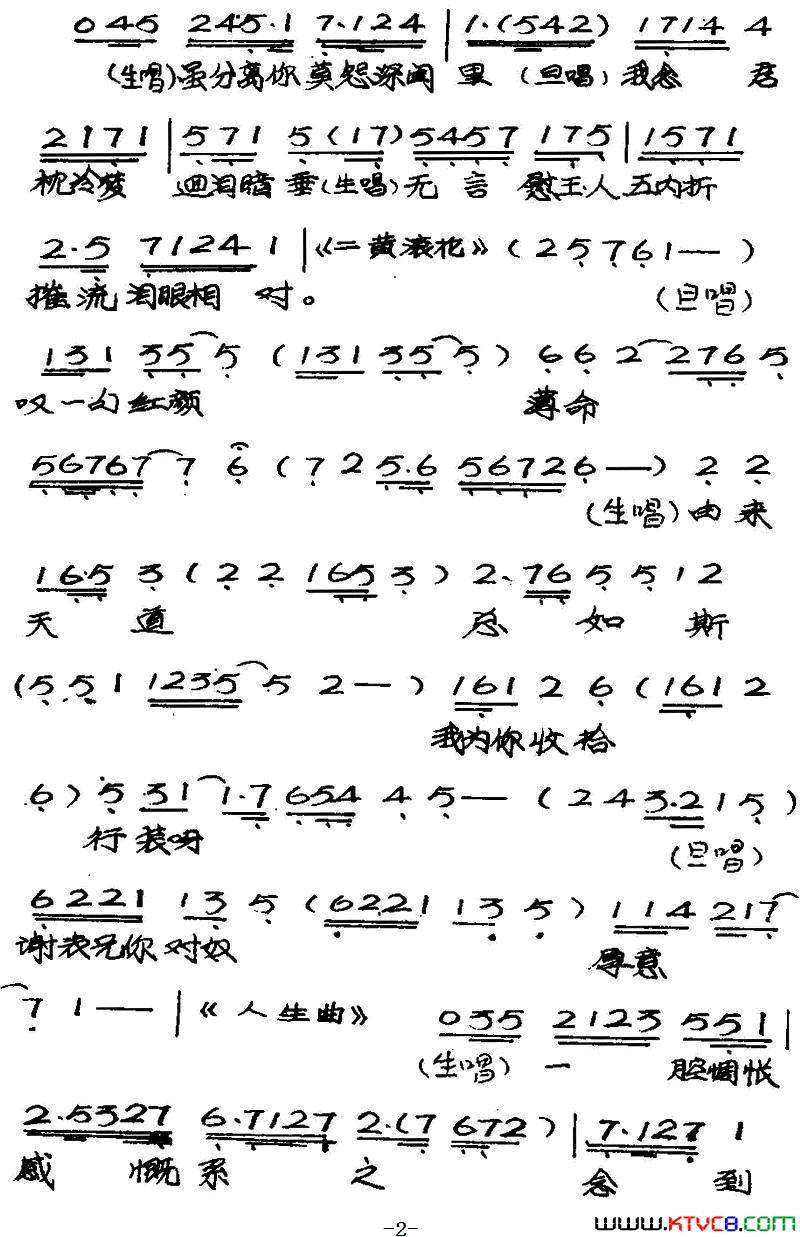 0 4 5 2 4 5 · 1 7 · 1 2 4 | 1 · ( 5 4 2 ) 1 7 1 4 4
(生唱) 虽分离你莫怨深闺里 (旦唱) 我念君
2 1 7 1 | 5 7 1 5 ( 1 7 ) 5 4 5 7 1 7 5 | 1 5 7 1
枕冷梦 迴泪暗垂 (生唱) 无言慰玉人五内折
2 · 5 7 1 2 4 1 | 《二黄滚花》 ( 2 5 7 6 1 — )
摧流泪眼相对。 (旦唱)
1 3 1 3 5 5 ( 1 3 1 3 5 5 ) 6 6 2 2 7 6 5
叹一句红颜 薄命
5 6 7 6 7 7 6 ( 7 2 5 · 6 5 6 7 2 6 — ) 2 2
(生唱) 由来
1 6 · 5 3 ( 2 2 1 6 5 3 ) 2 · 7 6 5 5 1 2
天道 总如斯
( 5 · 5 1 1 2 3 5 5 2 — ) 1 6 1 2 6 ( 1 6 1 2
我为你收拾
6 ) 5 3 1 1 · 7 6 5 4 4 5 — ( 2 4 3 · 2 1 5 )
行装呀 (旦唱)
6 2 2 1 1 3 5 ( 6 2 2 1 1 3 5 ) 1 1 4 2 1 7
谢表兄你对奴 厚意
7 1 — — | 《人生曲》 0 3 5 2 1 2 3 5 5 1 |
(生唱) 一腔惆怅
2 · 5 3 2 7 6 · 7 1 2 7 2 · ( 7 6 7 2 ) | 7 · 1 2 7 1
感慨系之 念到
-2-
WWW.KTVC8.COM